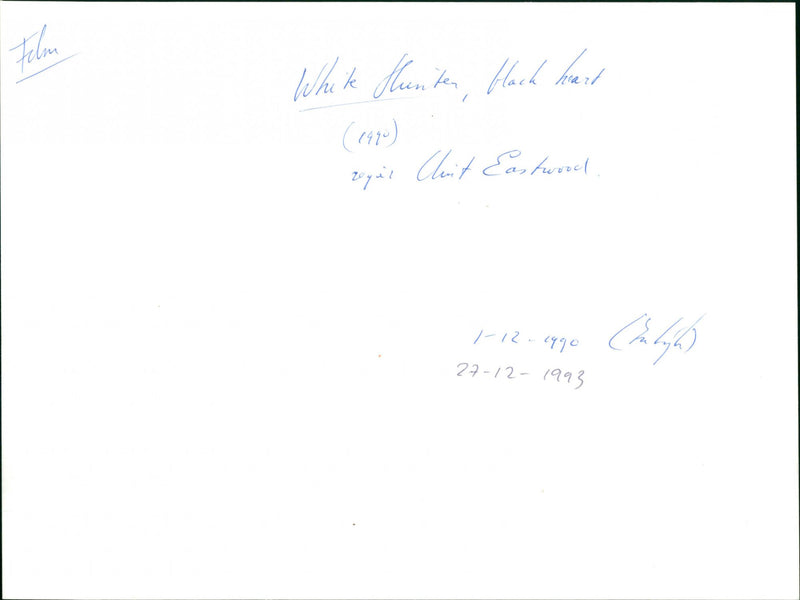 Film
White Hunter, black heart
(1990)
regie Clint Eastwood.
1-12-1990
27-12-1993